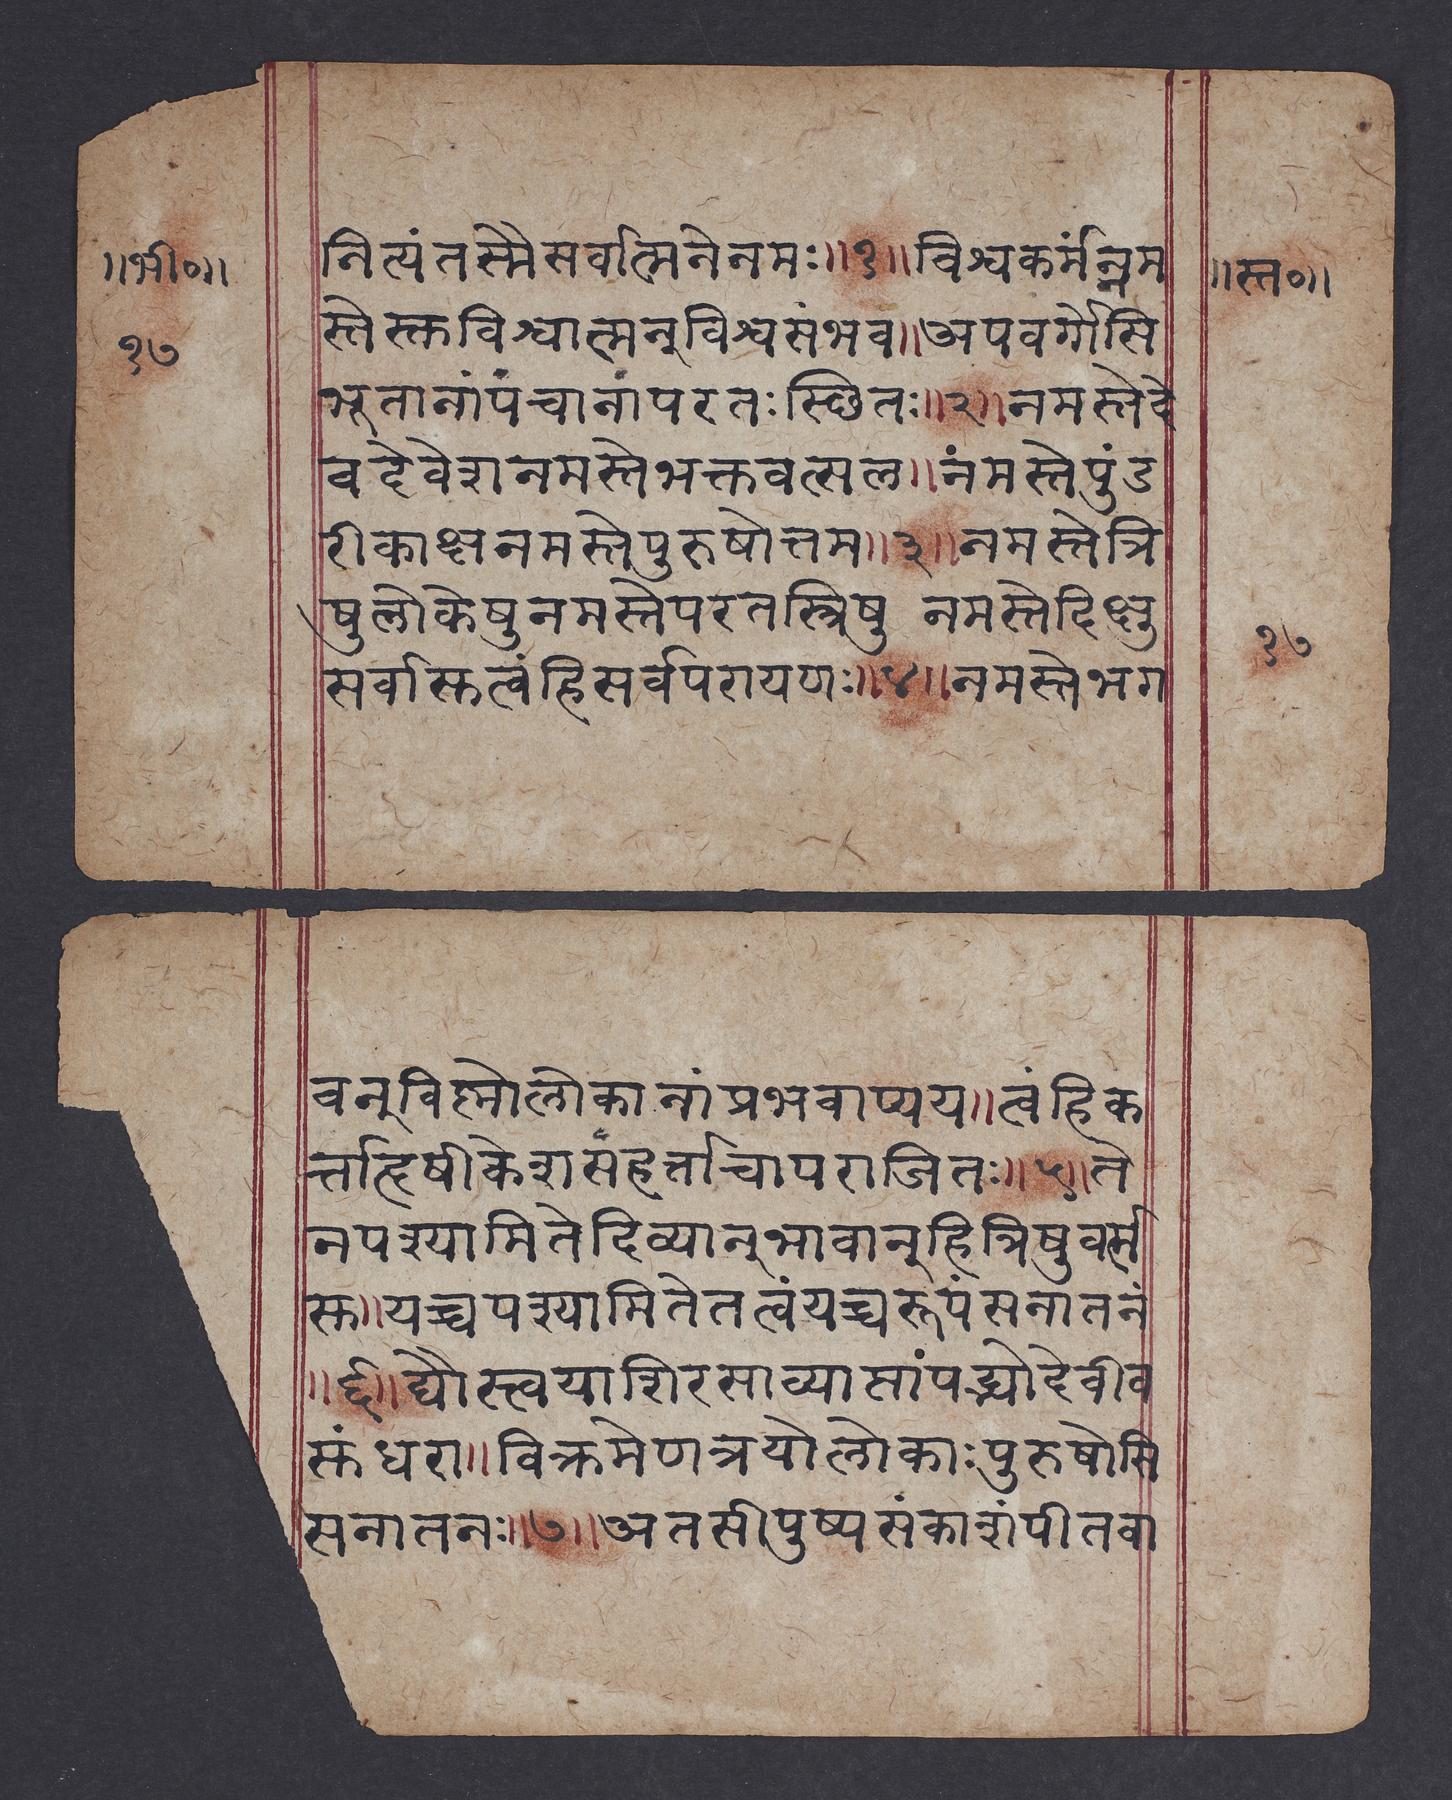 ॥भी०॥
१७
नित्यंतस्मैसर्वात्मनेनमः॥१॥विश्वकर्मन्नम
स्तेस्तविश्वात्मन्विश्वसंभव॥अपवर्गोसि
भूतानांपंचानांपरतःस्छितः॥२॥नमस्तेदे
वदेवेशनमस्तेभक्तवत्सल॥नंमस्तेपुंड
रीकाक्षनमस्तेपुरुषोत्तम॥३॥नमस्तेत्रि
षुलोकेषुनमस्तेपरतस्त्रिषु नमस्तेदिक्षु
सर्वास्तत्वंहिसर्वपरायणः॥४॥नमस्तेभग
॥स्त०॥
१७
वन्विष्णोलोकानांप्रभवाप्यय॥त्वंहिक
र्त्ताहृषीकेशसंहर्त्ताचापराजितः॥५॥ते
नपश्यामितेदिव्यान्भावान्हित्रिषुवर्त्म
स्त॥यच्चपश्यामितेतत्वंयच्चरूपंसनातनं
॥६॥द्यौस्त्वयाशिरसाव्याप्तांपद्भ्यांदेवीव
स्तंधरा॥विक्रमेणत्रयोलोकाःपुरुषोसि
सनातनः॥७॥अतसीपुष्यसंकाशंपीतवा